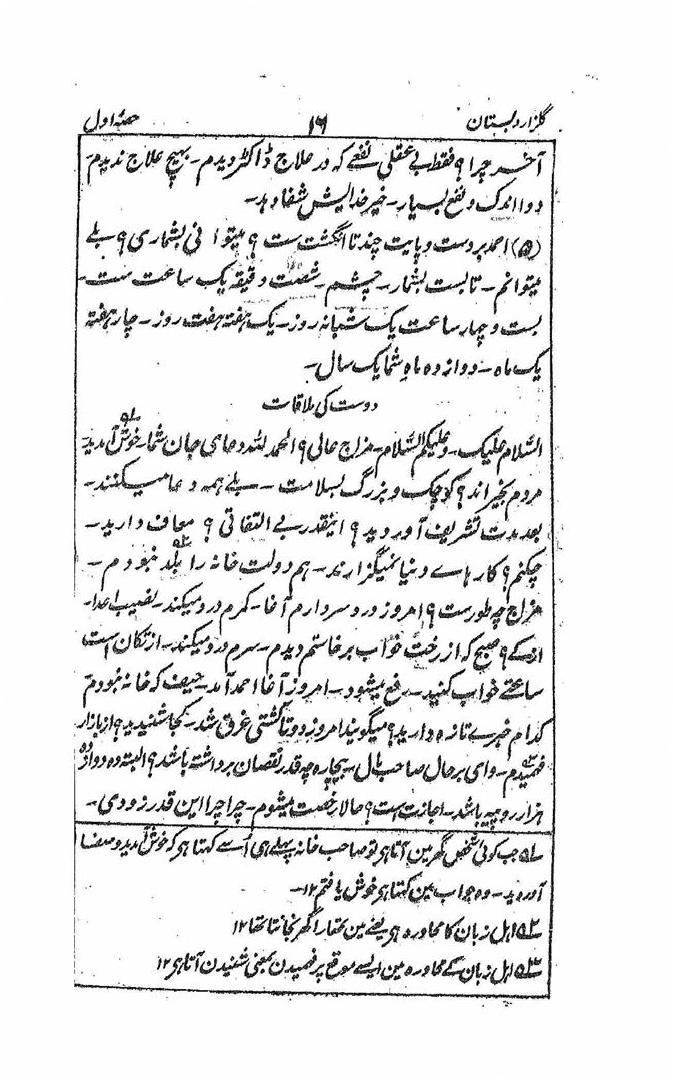 گلزار دبستان ۱۶ حصۂ اول
آخر چرا؟ فقط بے عقلی نفعے کہ در علاج ڈاکٹر دیدم۔ بہیچ علاج ندیدم
دوا اندک و نفع بسیار۔ خیر خدایش شفا دہد۔
(۵) احمد بر دست و پایت چند تا انگشت ست؟ میتوانی بشماری؟ بلے
میتوانم۔ تا بست بشمار۔ چشم۔ شصت دقیقہ یک ساعت ست۔
بست و چہار ساعت یک شبانہ روز۔ یک ہفتہ ہفت روز۔ چار ہفتہ
یک ماہ۔ دوازدہ ماہ شما یک سال۔
دوست کی ملاقات
السّلام علیک۔ وعلیکم السّلام۔ مزاج عالی؟ الحمد للہ دعای جان شما۔ خوش آمدید
مردم بخیر اند؟ کوچک و بزرگ بسلامت۔ بلے ہمہ دعا میکنند۔
بعد مدت تشریف آوردید؟ اینقدر بے التفاتی؟ معاف دارید۔
چکنم؟ کار ہاے دنیا نمیگزارند۔ ہم دولت خانہ را بلد نبودم۔
مزاج چہ طورست؟ امروز درد سر دارم آغا۔ کمرم درد میکند۔ نصیب اعدا۔
از کے؟ صبح کہ از رخت خواب برخاستم دیدم۔ سرم درد میکند۔ از تکان است
ساعتے خواب کنید۔ رفع میشود۔ امروز آغا احمد آمد۔ حیف کہ خانہ نبودم
کدام خبرے تازہ دارید؟ میگویند امروز دو تا کشتی غرق شد۔ کجا شنیدید؟ از بازار
فہمیدم۔ وای بر حال صاحب مال۔ بیچارہ چہ قدر نقصان برداشتہ باشد؟ البتہ دہ دوازدہ
ہزار روپیہ باشد۔ اجازت است؟ حالا رخصت میشوم۔ چرا چرا این قدر زودی۔
۱؎ جب کوئی شخص گھر مین آتا ہو تو صاحب خانہ پہلے ہی اُسے کہتا ہو کہ خوش آمدید و صفا
آوردید۔ وہ جواب مین کہتا ہو خوش یافتم ۱۲۔
۲؎ اہل زبان کا محاورہ ہو یعنے مین تمھارا گھر نجانتا تھا ۱۲
۳؎ اہل زبان کے محاورہ مین ایسے موقع پر فہمیدن بمعنی شنیدن آتا ہو ۱۲